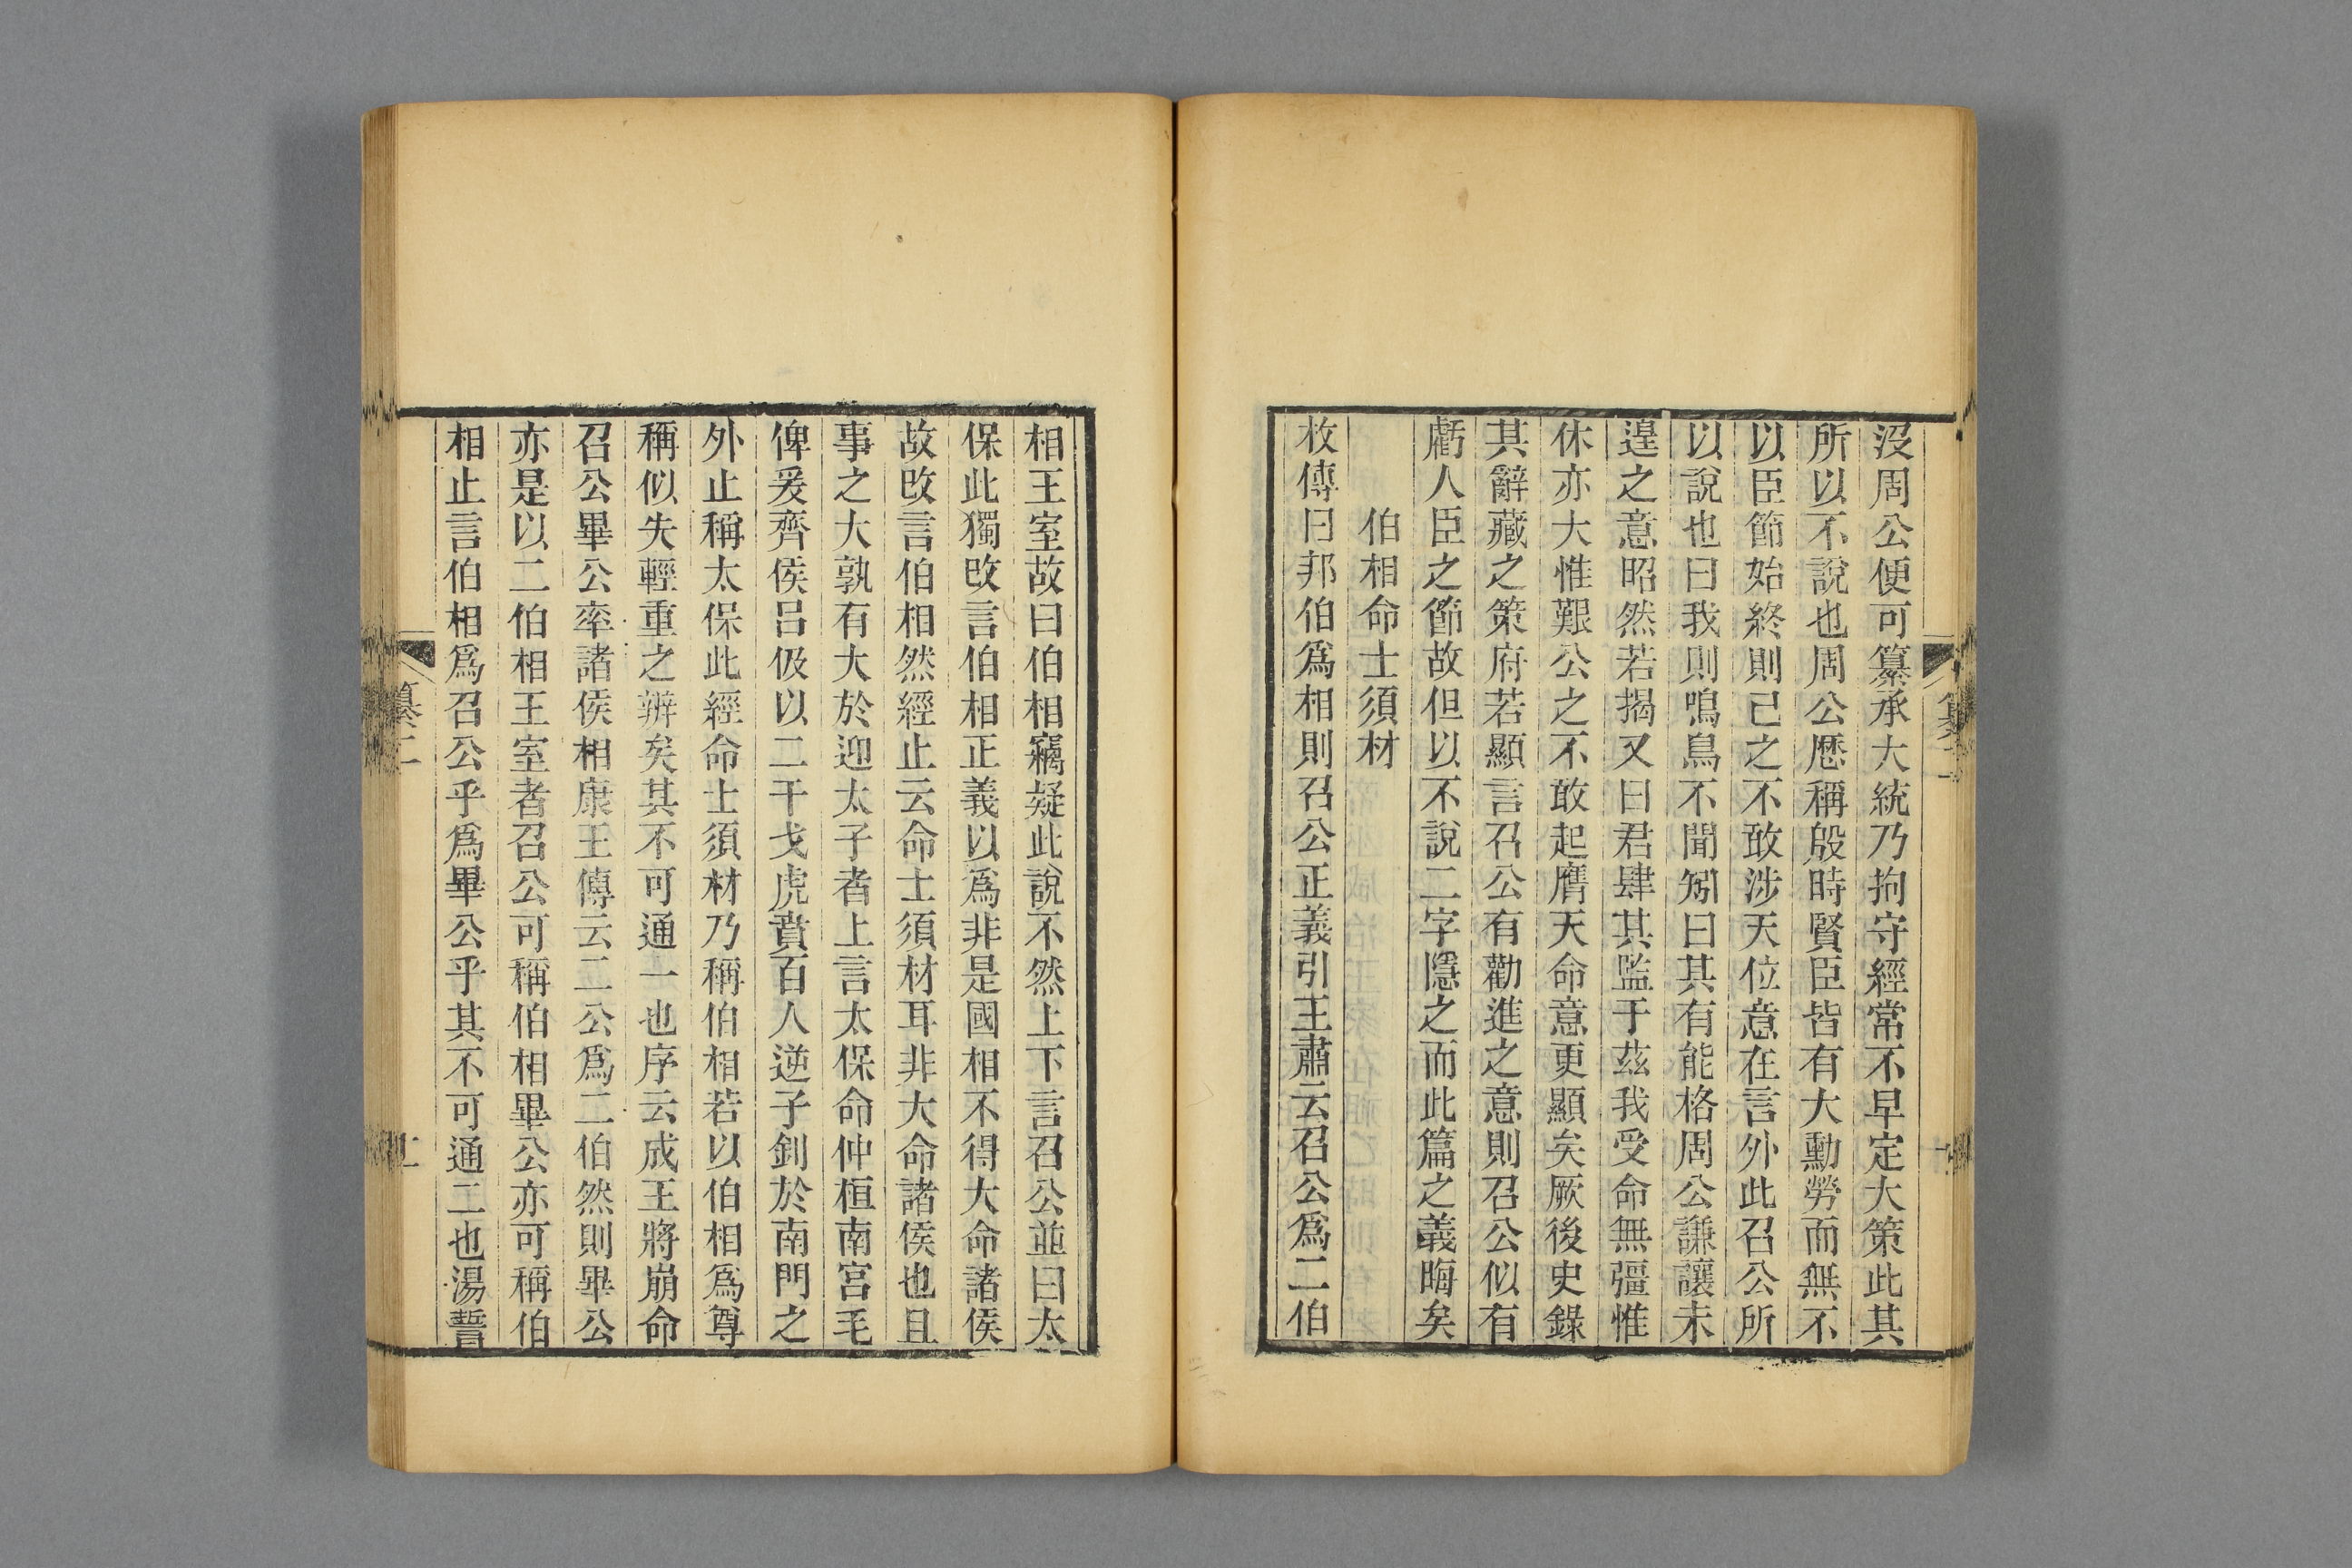 沒周公便可纂承大統乃拘守經常不早定大策此其
所以不說也周公歷稱殷時賢臣皆有大勳勞而無不
以臣節始終則已之不敢涉天位意在言外此召公所
以說也曰我則鳴鳥不聞矧曰其有能格周公謙讓未
遑之意昭然若揭又曰君肆其監于茲我受命無彊惟
休亦大惟艱公之不敢起膺天命意更顯矣厥後史錄
其辭藏之策府若顯言召公有勸進之意則召公似有
虧人臣之節故但以不說二字隱之而此篇之義晦矣
伯相命士須材
枚傳曰邦伯爲相則召公正義引王肅云召公爲二伯
相王室故曰伯相竊疑此說不然上下言召公並曰太
保此獨改言伯相正義以爲非是國相不得大命諸侯
故改言伯相然經止云命士須材耳非大命諸侯也且
事之大孰有大於迎太子者上言太保命仲桓南宮毛
俾爰齊侯呂伋以二干戈虎賁百人逆子釗於南門之
外止稱太保此經命士須材乃稱伯相若以伯相爲尊
稱似失輕重之辨矣其不可通一也序云成王將崩命
召公畢公率諸侯相康王傳云二公爲二伯然則畢公
亦是以二伯相王室者召公可稱伯相畢公亦可稱伯
相止言伯相爲召公乎爲畢公乎其不可通二也湯誓
纂二